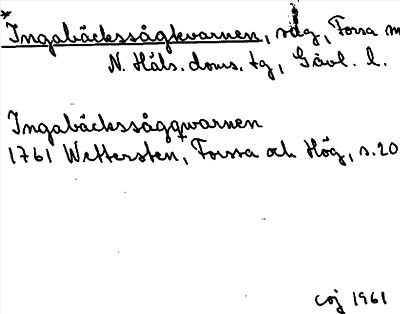 *Ingabäckssågkvarnen, sdg, Forsa
N. Häls. doms. tg, Gävl. l.
Ingabäckssågqwarnen
1761 Wettersten, Forssa och Hög, s. 20
coj 1961